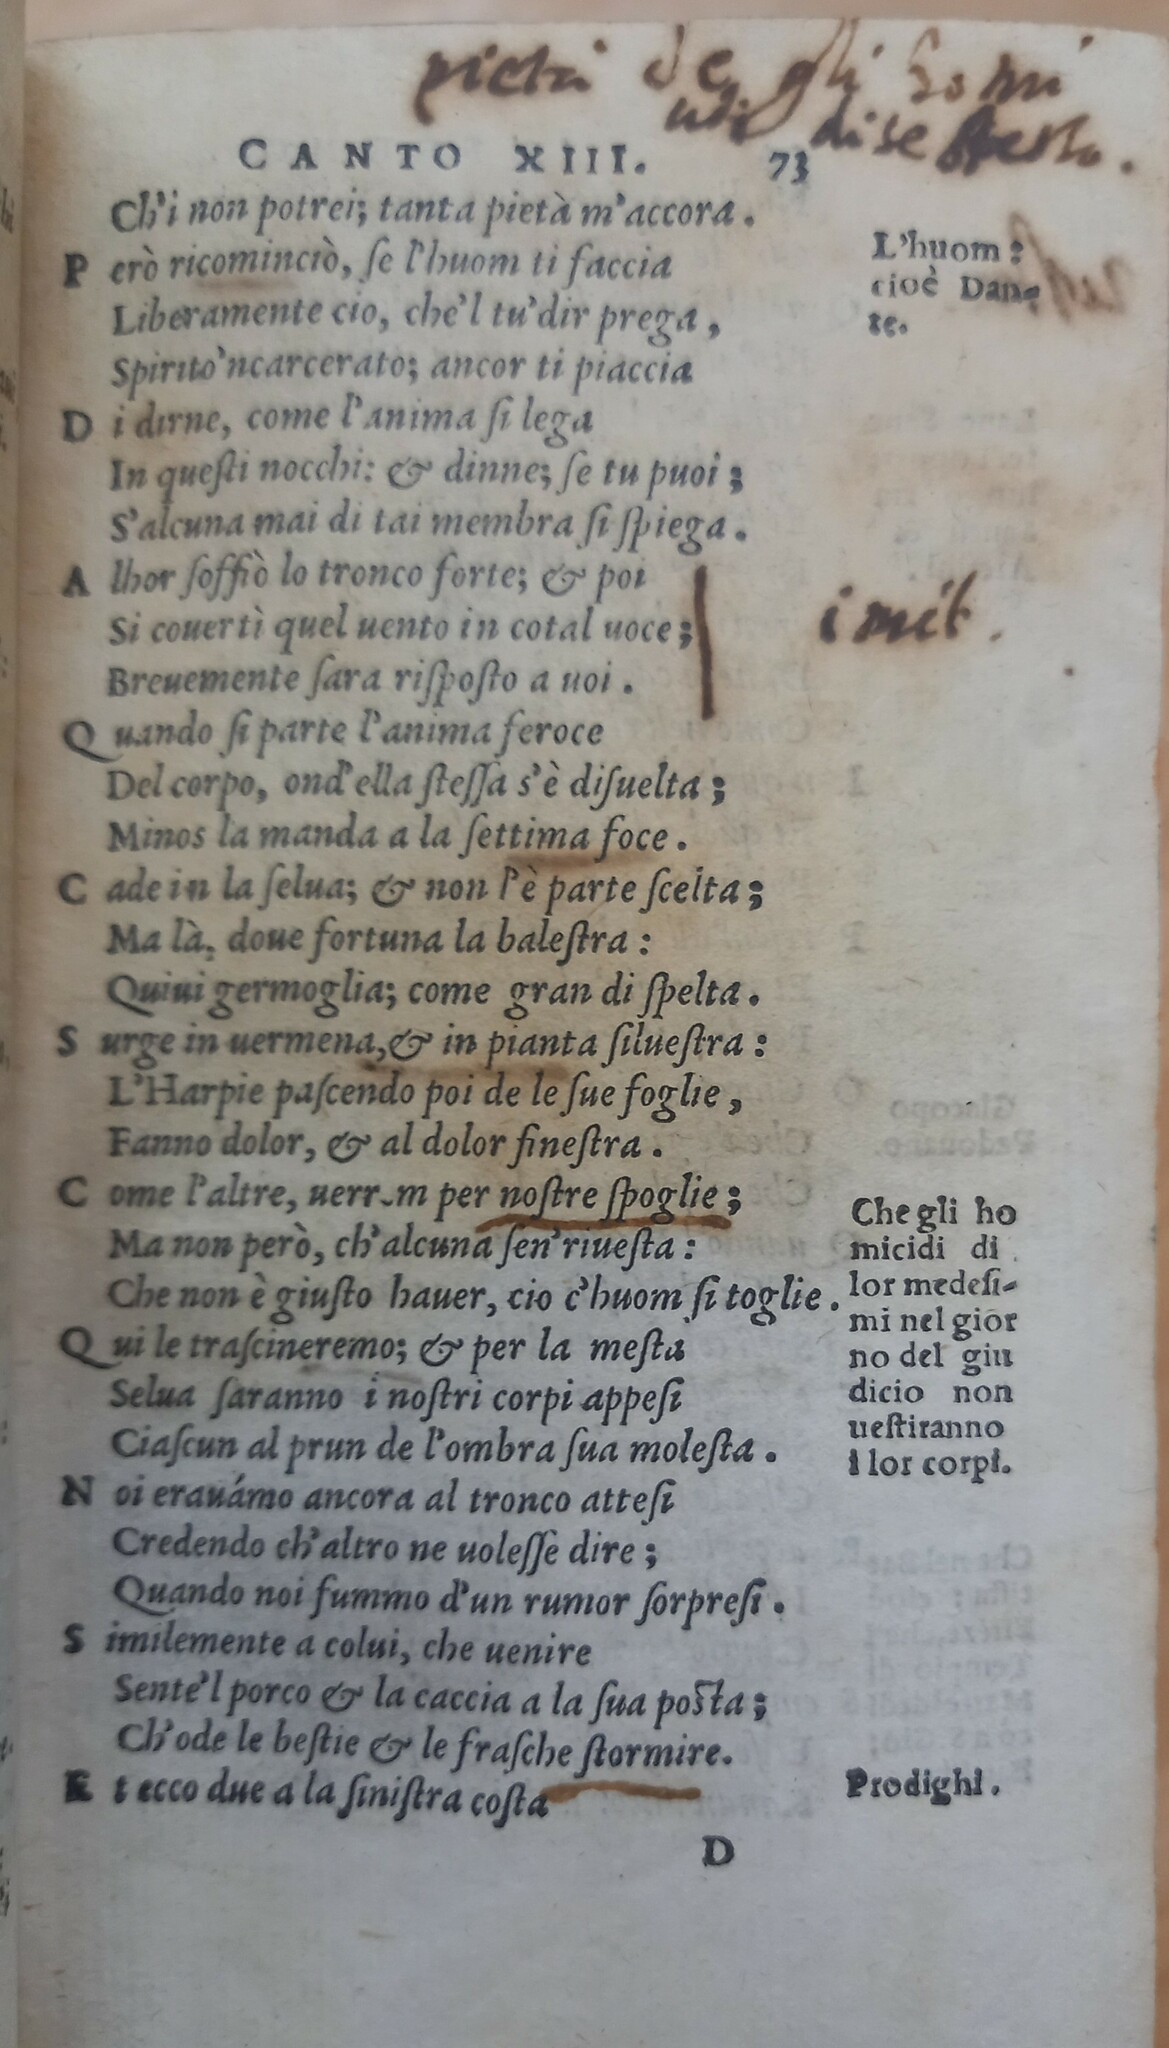 pietà de gli homi
CANTO XIII. 73
Ch'i non potrei; tanta pietà m'accora.
Però ricominciò, ſe l'huom ti faccia
Liberamente cio, che'l tu'dir prega,
Spirito'ncarcerato; ancor ti piaccia
Di dirne, come l'anima ſi lega
In queſti nocchi: & dinne; ſe tu puoi;
S'alcuna mai di tai membra ſi ſpiega.
Alhor ſoffiò lo tronco forte; & poi
Si couertì quel uento in cotal uoce;
Breuemente ſara riſpoſto a uoi.
Quando ſi parte l'anima feroce
Del corpo, ond'ella ſteſſa s'è diſuelta;
Minos la manda a la ſettima foce.
Cade in la ſelua; & non l'è parte ſcelta;
Ma là, doue fortuna la baleſtra:
Quiui germoglia; come gran di ſpelta.
Surge in uermena, & in pianta ſilueſtra:
L'Harpie paſcendo poi de le ſue foglie,
Fanno dolor, & al dolor fineſtra.
Come l'altre, uerrem per noſtre ſpoglie;
Ma non però, ch'alcuna ſen'riueſta:
Che non è giuſto hauer, cio c'huom ſi toglie.
Qui le traſcineremo; & per la meſta
Selua ſaranno i noſtri corpi appeſi
Ciaſcun al prun de l'ombra ſua moleſta.
Noi erauámo ancora al tronco atteſi
Credendo ch'altro ne uoleſſe dire;
Quando noi fummo d'un rumor ſorpreſi.
Similemente a colui, che uenire
Sente'l porco & la caccia a la ſua poſta;
Ch'ode le beſtie & le fraſche ſtormire.
Et ecco due a la ſiniſtra coſta
D
L'huom:
cioè Dan-
te.
imit.
Che gli ho
micidi di
lor medeſi-
mi nel gior
no del giu
dicio non
ueſtiranno
i lor corpi.
Prodighi.